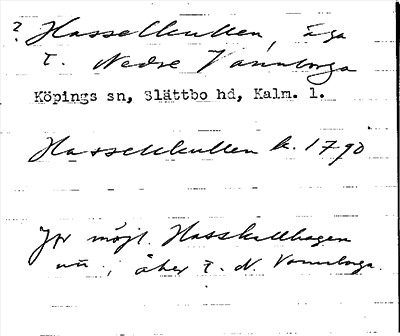 ? Hasselkullen, äga
t. Nedre Vannborga
Köpings sn, Slättbo hd, Kalm. l.
Hasselekullen k. 1790
Jfr möjl. Hasskullhagen
nu i åker t. N. Vannborga.